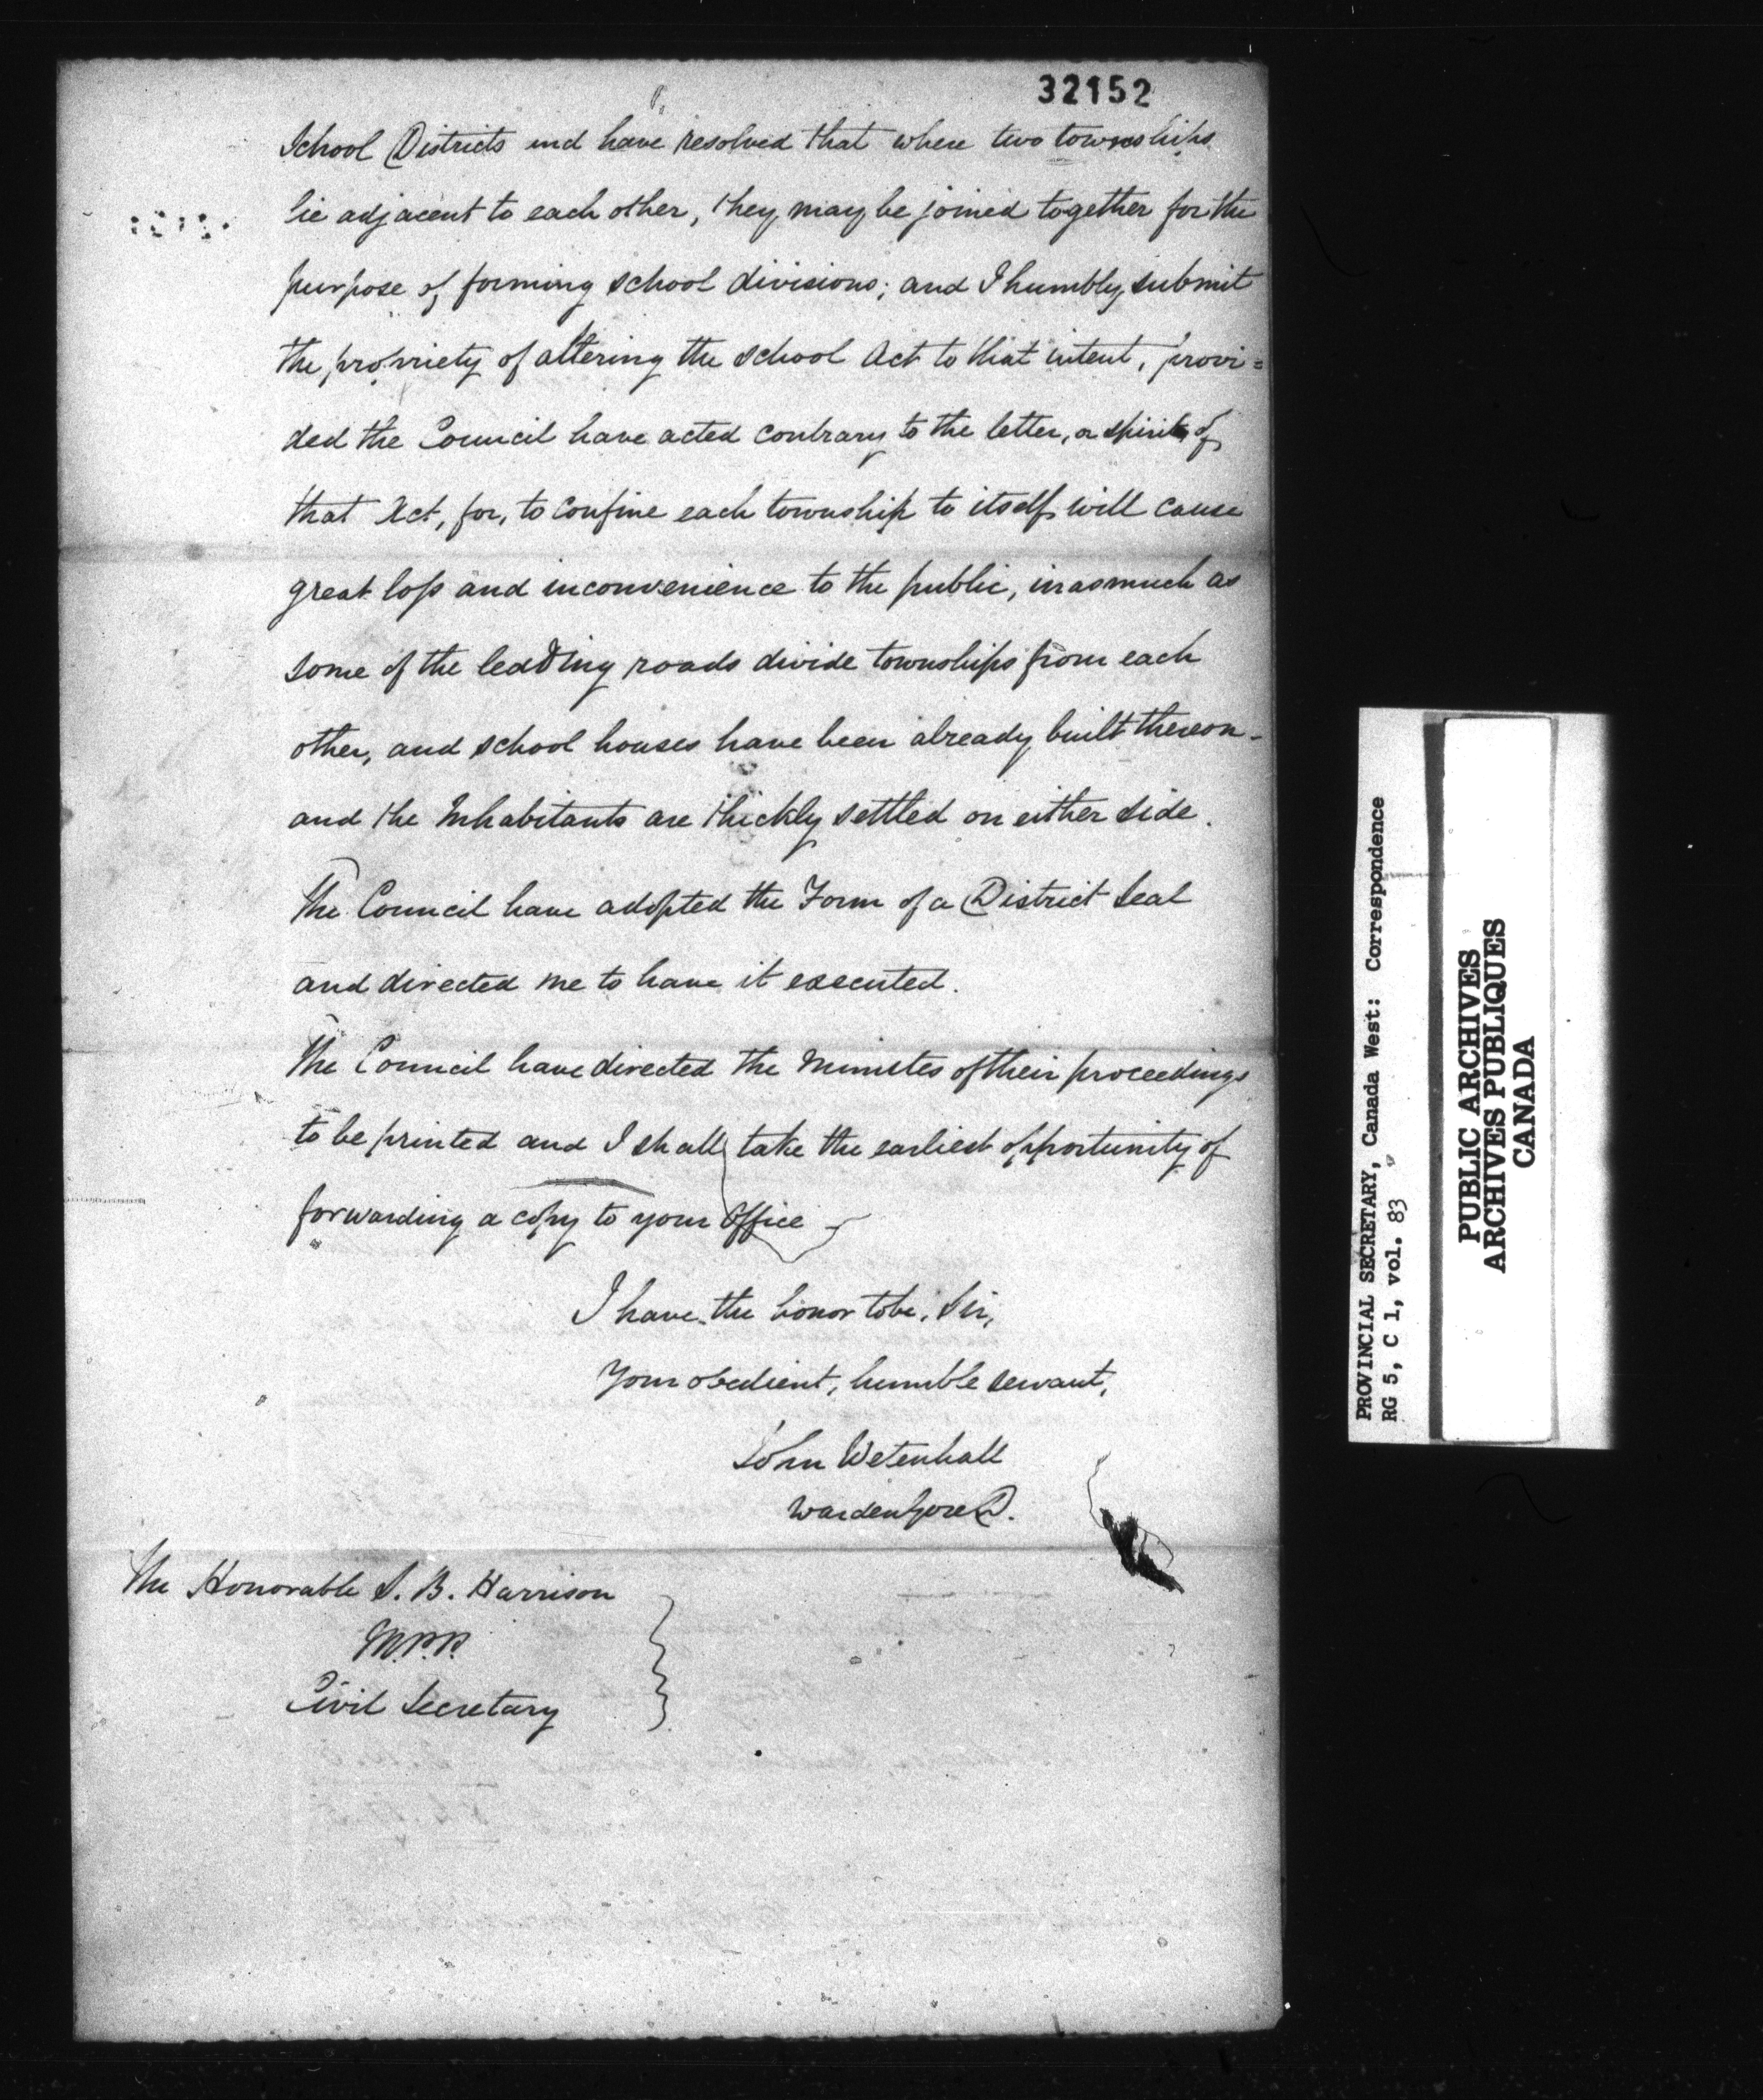 32152
School Districts and have resolved that where two townships
lie adjacent to each other, they may be joined together for the
purpose of forming school divisions; and I humbly submit
the propriety of altering the school Act to that intent, provi=
ded the Council have acted contrary to the letter, or spirit of
that Act, for, to confine each township to itself will cause
great loss and inconvenience to the public, inasmuch as
some of the leading roads divide townships from each
other, and school houses have been already built thereon -
and the Inhabitants are thickly settled on either side.
The Council have adopted the Form of a District Seal
and directed me to have it executed.
The Council have directed the Minutes of their proceedings
to be printed and I shall take the earliest opportunity of
forwarding a copy to your Office -
I have the honor to be, Sir,
Your obedient, humble servant,
John Wetenhall
Warden Gore D.
The Honorable S. B. Harrison
M.P.P.
Civil Secretary
PROVINCIAL SECRETARY, Canada West: Correspondence
RG 5, C 1, vol. 83
PUBLIC ARCHIVES
ARCHIVES PUBLIQUES
CANADA